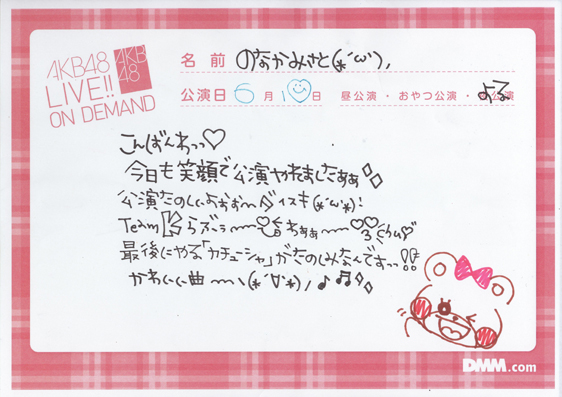 AKB48
LIVE!!
ON DEMAND
AKB
48
名前 のなかみさと(*´ω`),
公演日 6月10日 昼公演・おやつ公演・よる公演
こんばんわっっ♡
今日も笑顔で公演やれましたぁぁ
公演たのしいよぉぉ〜ダイスキ(*´ω`*)!
Team Kらぶ〜
ちゅぁぁ〜♡♡3 chu♡
最後にやる「カチューシャ」がたのしみなんですっ!!
かわいい曲〜、(*´∀`*)ノ♪♫
DMM.com